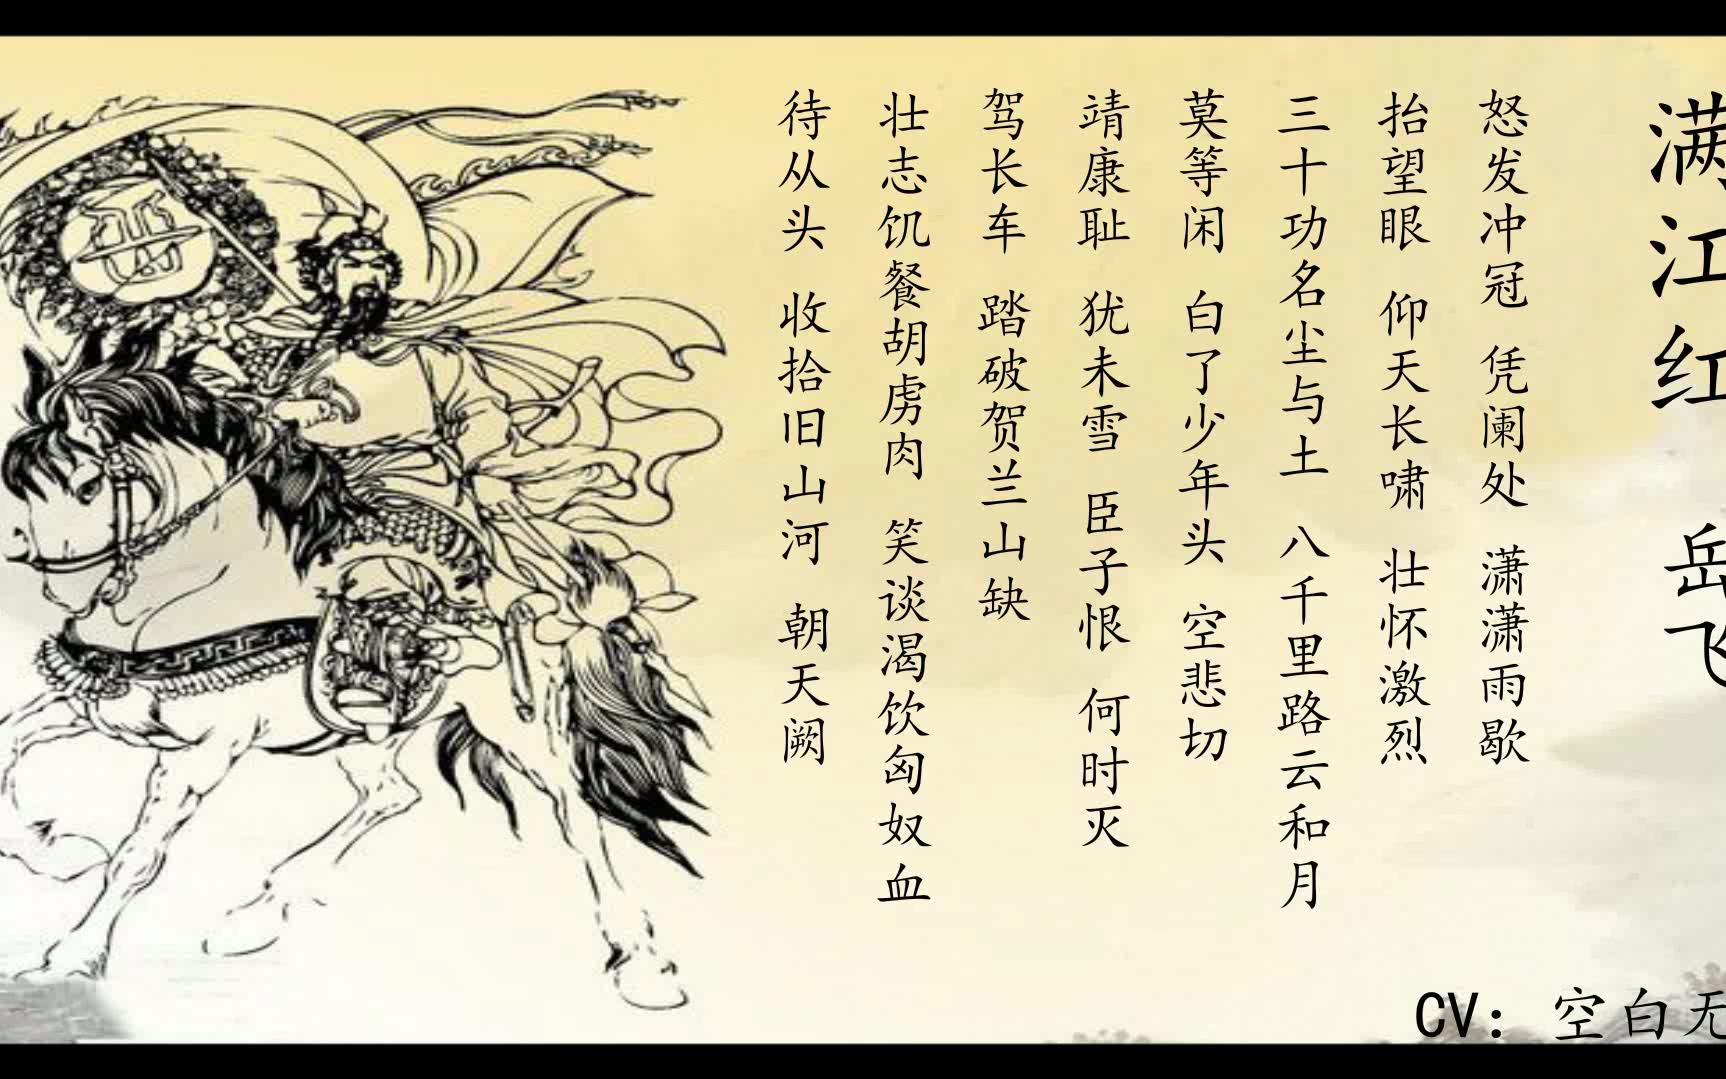 满江红 岳飞
怒发冲冠 凭阑处 潇潇雨歇
抬望眼 仰天长啸 壮怀激烈
三十功名尘与土 八千里路云和月
莫等闲 白了少年头 空悲切
靖康耻 犹未雪 臣子恨 何时灭
驾长车 踏破贺兰山缺
壮志饥餐胡虏肉 笑谈渴饮匈奴血
待从头 收拾旧山河 朝天阙
CV：空白无